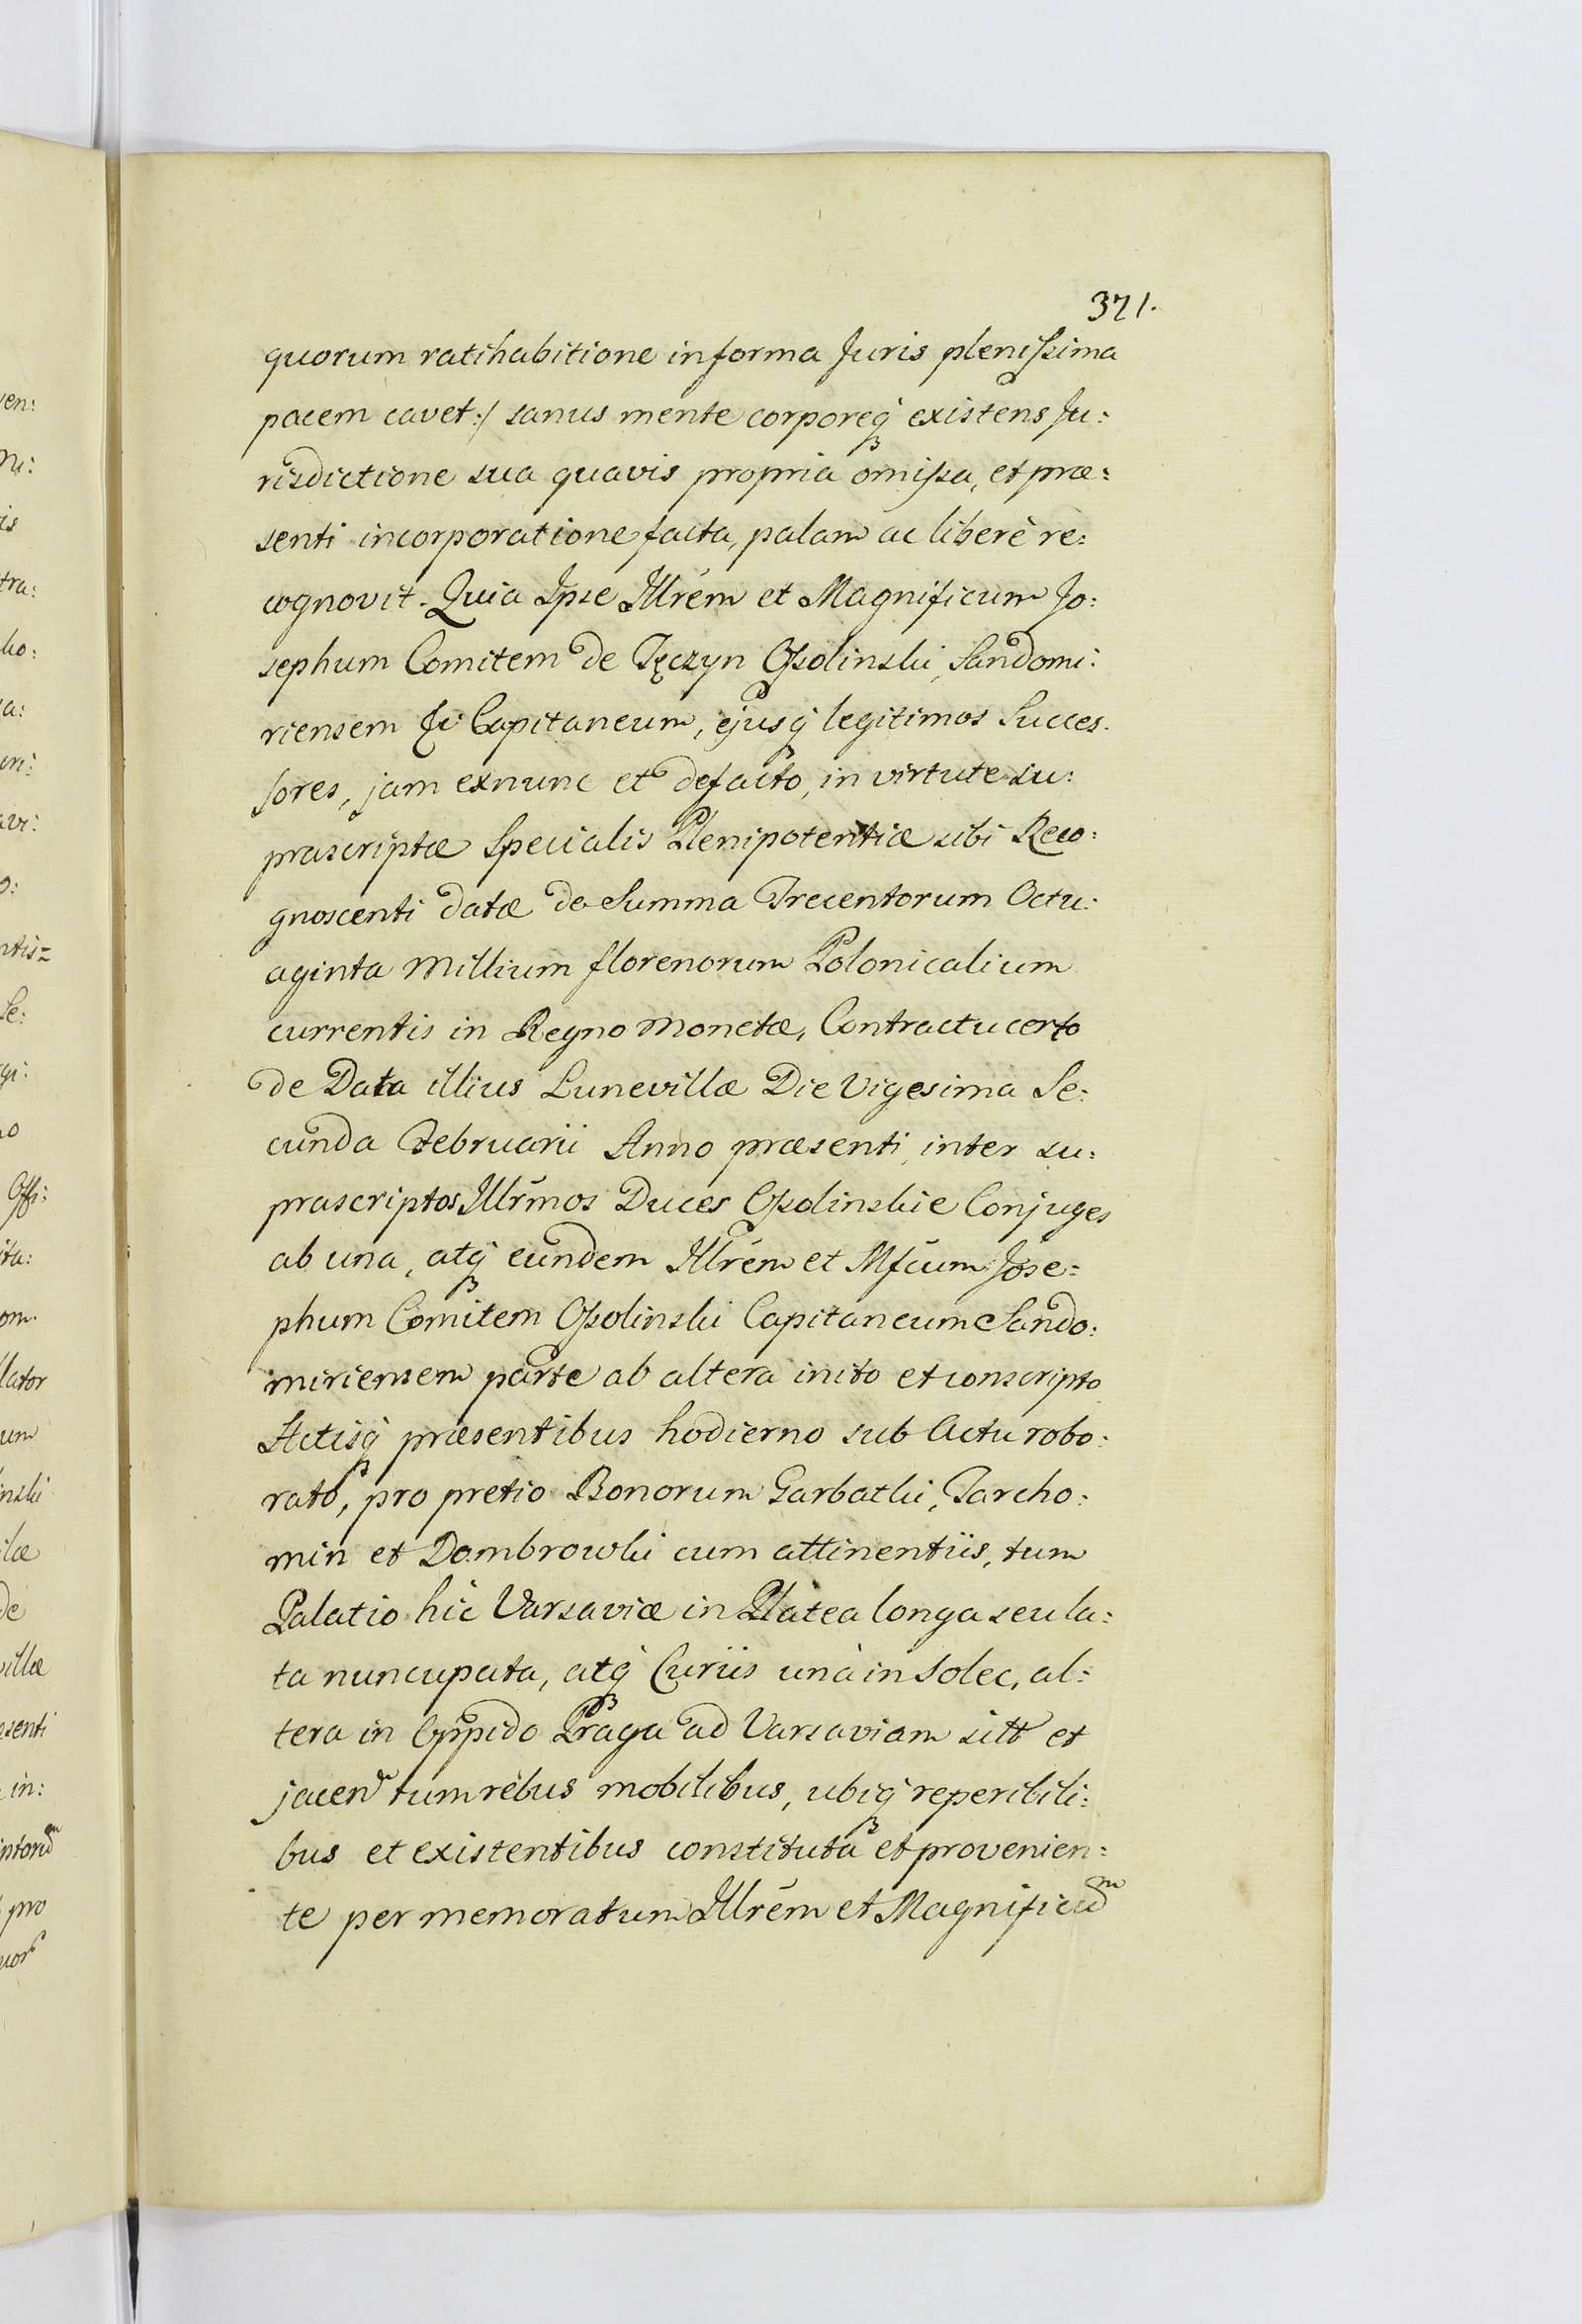 371.
quorum ratihabitione in forma Juris plenissima
pacem cavet:/ sanus mente corporeq; existens Ju:
risdictione sua quavis propria omissa, et præ:
senti incorporatione facta, palam ac liberè re:
cognovit. Quia Ipse Illrem et Magnificum Jo:
sephum Comitem de Tęczyn Ossolinski, Sandomi:
riensem &c Capitaneum, ejusq; legitimos Succes.
sores, jam exnunc et defacto, in virtute su:
prascriptæ Specialis Plenipotentiæ sibi Reco:
gnoscenti datæ de Summa Trecentorum Octu:
aginta Millium florenorum Polonicalium
currentis in Regno Monetæ, Contractu certo
de Data illius Lunevillæ Die Vigesima Se:
cunda Februarii Anno præsenti, inter su:
prascriptos Illrmos Duces Ossolinskie Conjuges
ab una, atq; eundem Illrem et Mfcum Jose:
phum Comitem Ossolinski Capitaneum Sando:
miriensem parte ab altera inito et conscripto
Actisq; præsentibus hodierno sub Actu robo:
rato, pro pretio Bonorum Garbatki, Tarcho:
min et Dombrowki cum attinentiis, tum
Palatio hic Varsaviæ in Platea longa seu la:
ta nuncupata, atq; Curiis unà in Solec, al:
tera in Oppido Praga ad Varsaviam sitt et
jacen tum rebus mobilibus, ubiq; reperibili:
bus et existentibus constituta et provenien:
te per memoratum Illrem et Magnificum